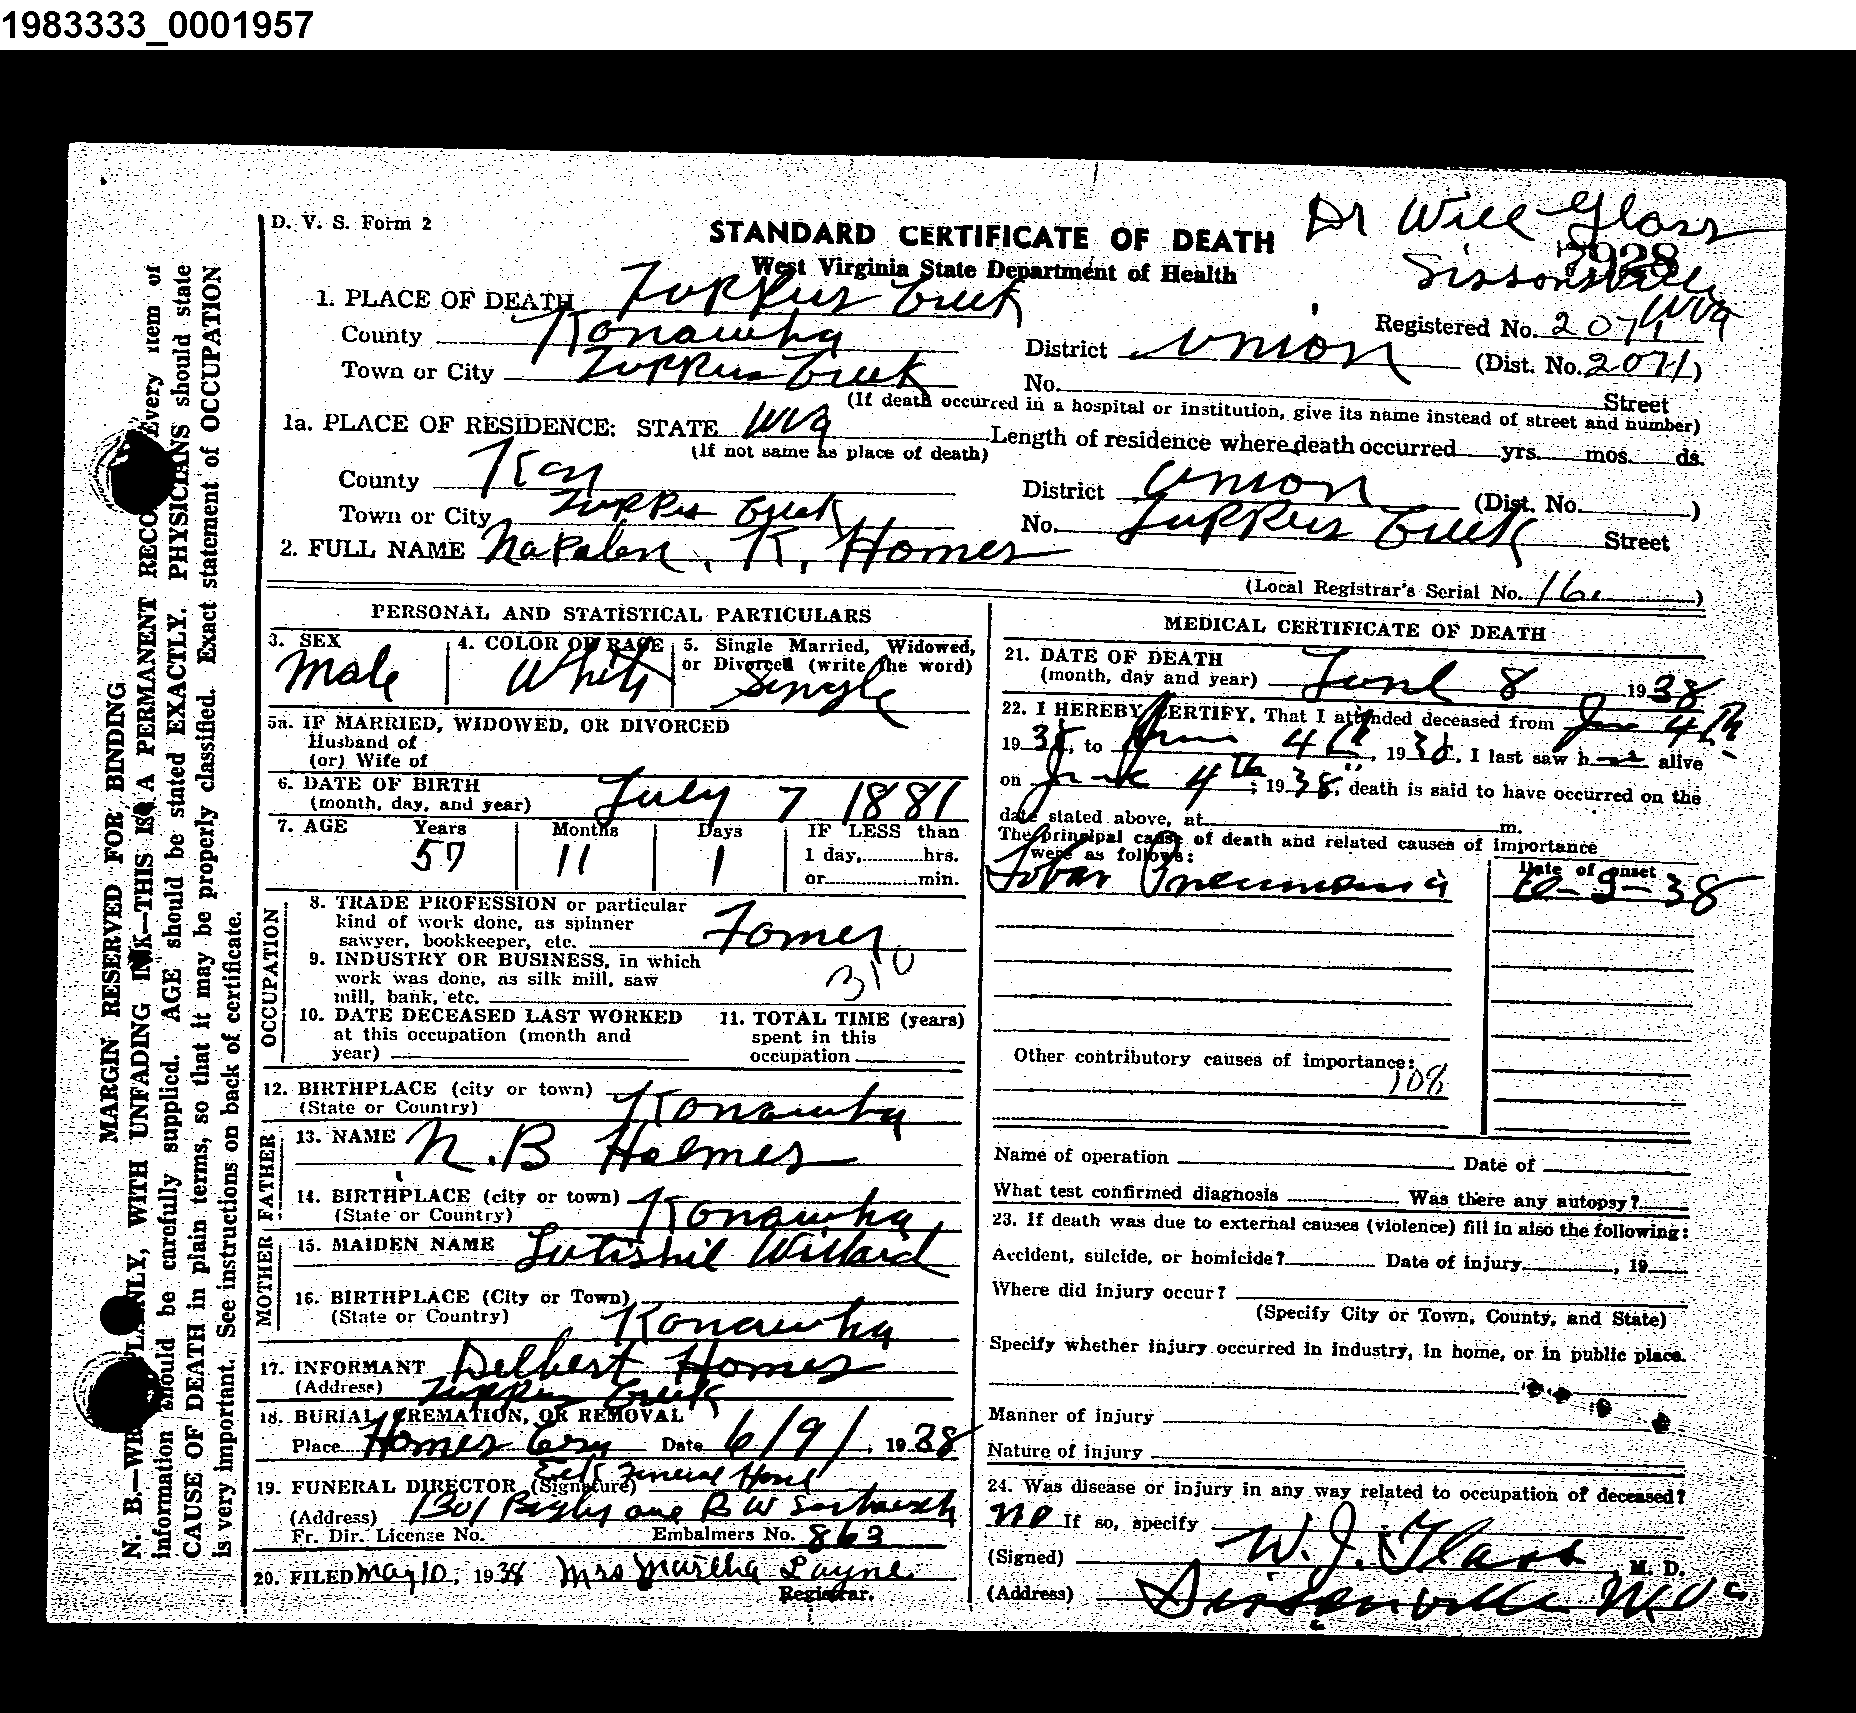 1983333_0001957
D. V. S. Form 2
STANDARD CERTIFICATE OF DEATH
West Virginia State Department of Health
Dr Will Glass
7928
Sissonsville
WVa
1. PLACE OF DEATH Tuppers Creek
County Konawha
Registered No. 2071
District Union (Dist. No. 2071)
Town or City Tuppers Creek
No. Street
(If death occurred in a hospital or institution, give its name instead of street and number)
1a. PLACE OF RESIDENCE: STATE WVa
(If not same as place of death)
Length of residence where death occurred yrs. mos. ds.
County Kan
District Union (Dist. No. )
Town or City Tuppers Creek
No. Tuppers Creek Street
2. FULL NAME Napolen, K, Homes
(Local Registrar's Serial No. 16 )
PERSONAL AND STATISTICAL PARTICULARS
3. SEX Male
4. COLOR OR RACE White
5. Single Married, Widowed, or Divorced (write the word) Single
5a. IF MARRIED, WIDOWED, OR DIVORCED
Husband of
(or) Wife of
6. DATE OF BIRTH
(month, day, and year) July 7 1881
7. AGE Years 57 Months 11 Days 1
IF LESS than
1 day, hrs.
or min.
OCCUPATION
8. TRADE PROFESSION or particular
kind of work done, as spinner
sawyer, bookkeeper, etc. Fomer
310
9. INDUSTRY OR BUSINESS, in which
work was done, as silk mill, saw
mill, bank, etc.
10. DATE DECEASED LAST WORKED
at this occupation (month and
year)
11. TOTAL TIME (years)
spent in this
occupation
12. BIRTHPLACE (city or town)
(State or Country) Konawha
FATHER
13. NAME N. B Holmes
14. BIRTHPLACE (city or town)
(State or Country) Konawha
MOTHER
15. MAIDEN NAME Lutishil Willard
16. BIRTHPLACE (City or Town)
(State or Country) Konawha
17. INFORMANT Delbert Homes
(Address) Tuppers Creek
18. BURIAL, CREMATION, OR REMOVAL
Place Homes Date 6/9/, 1938
19. FUNERAL DIRECTOR (Signature) Funeral Home
(Address) 1301 Bigley ave B W
Fr. Dir. License No. Embalmers No. 863
20. FILED May 10, 1938 Mrs Martha Payne
Registrar.
MEDICAL CERTIFICATE OF DEATH
21. DATE OF DEATH
(month, day and year) June 8 1938
22. I HEREBY CERTIFY, That I attended deceased from June 4th
1938, to June 4th, 1938, I last saw h alive
on June 4th, 1938, death is said to have occurred on the
date stated above, at m.
The principal cause of death and related causes of importance
were as follows:
Date of onset
Lobar Pneumonia
Other contributory causes of importance:
108
Name of operation Date of
What test confirmed diagnosis Was there any autopsy?
23. If death was due to external causes (violence) fill in also the following:
Accident, suicide, or homicide? Date of injury , 19
Where did injury occur?
(Specify City or Town, County, and State)
Specify whether injury occurred in industry, in home, or in public place.
Manner of injury
Nature of injury
24. Was disease or injury in any way related to occupation of deceased?
no If so, specify
(Signed) W. J. Glass, M. D.
(Address) Sissonville W. Va
MARGIN RESERVED FOR BINDING
N. B.—WRITE PLAINLY, WITH UNFADING INK—THIS IS A PERMANENT RECORD. Every item of
information should be carefully supplied. AGE should be stated EXACTLY. PHYSICIANS should state
CAUSE OF DEATH in plain terms, so that it may be properly classified. Exact statement of OCCUPATION
is very important. See instructions on back of certificate.